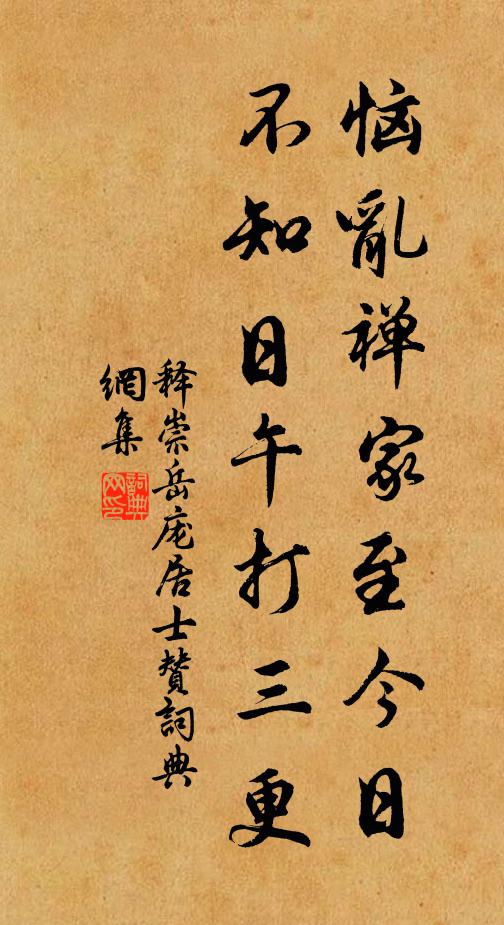 恼亂禅家至今日
不知日午打三更
释崇岳庞居士赞詞典
網集
詞典
网印